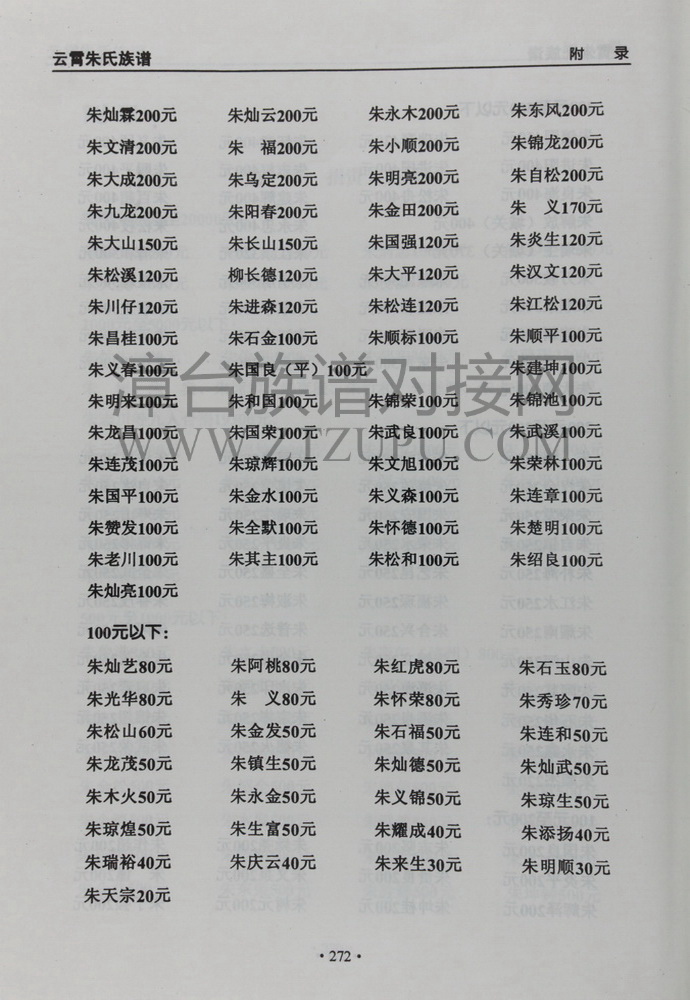 云霄朱氏族谱 附 录
朱灿霖200元 朱灿云200元 朱永木200元 朱东风200元
朱文清200元 朱 福200元 朱小顺200元 朱锦龙200元
朱大成200元 朱乌定200元 朱明亮200元 朱自松200元
朱九龙200元 朱阳春200元 朱金田200元 朱 义170元
朱大山150元 朱长山150元 朱国强120元 朱炎生120元
朱松溪120元 柳长德120元 朱大平120元 朱汉文120元
朱川仔120元 朱进森120元 朱松连120元 朱江松120元
朱昌桂100元 朱石金100元 朱顺标100元 朱顺平100元
朱义春100元 朱国良（平）100元 朱建坤100元
朱明来100元 朱和国100元 朱锦荣100元 朱锦池100元
朱龙昌100元 朱国荣100元 朱武良100元 朱武溪100元
朱连茂100元 朱琼辉100元 朱文旭100元 朱荣林100元
朱国平100元 朱金水100元 朱义森100元 朱连章100元
朱赞发100元 朱全默100元 朱怀德100元 朱楚明100元
朱老川100元 朱其主100元 朱松和100元 朱绍良100元
朱灿亮100元
100元以下：
朱灿艺80元 朱阿桃80元 朱红虎80元 朱石玉80元
朱光华80元 朱 义80元 朱怀荣80元 朱秀珍70元
朱松山60元 朱金发50元 朱石福50元 朱连和50元
朱龙茂50元 朱镇生50元 朱灿德50元 朱灿武50元
朱木火50元 朱永金50元 朱义锦50元 朱琼生50元
朱琼煌50元 朱生富50元 朱耀成40元 朱添扬40元
朱瑞裕40元 朱庆云40元 朱来生30元 朱明顺30元
朱天宗20元
漳台族谱对接网
WWW.ZTZUPU.COM
·272·